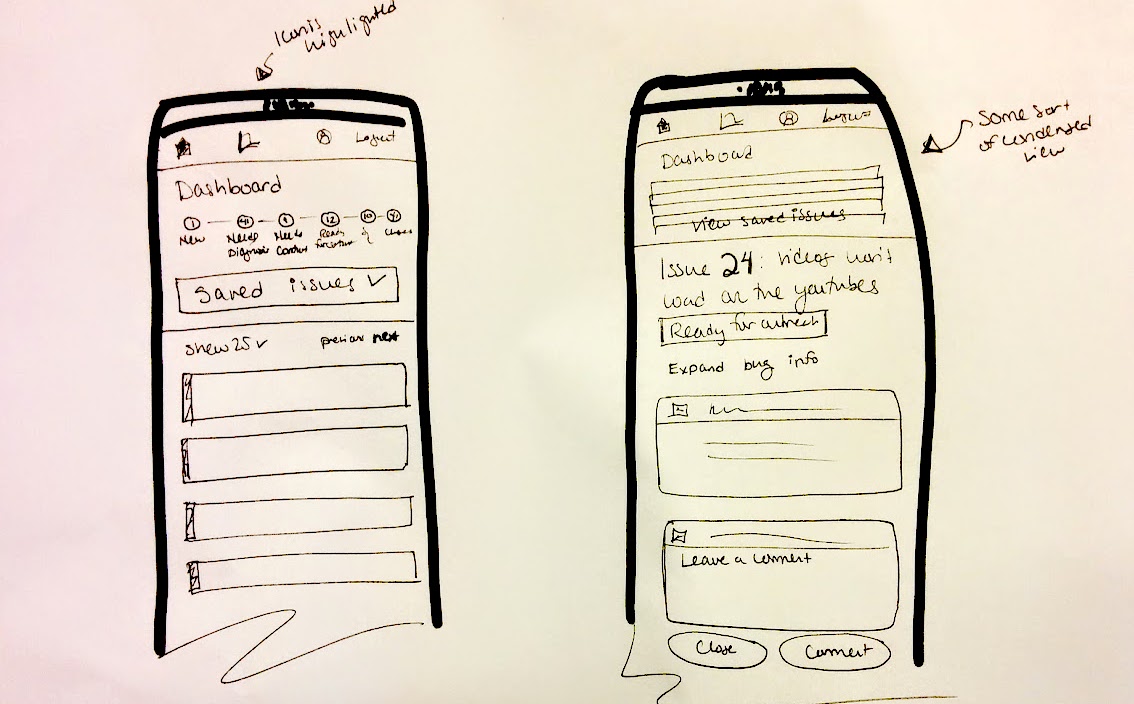 Icon is
highlighted
Logout
Dashboard
1
41
12
10
New
Needs
Diagnosis
Needs
Contact
Ready
for outreach
Saved issues
Show 25
previous next
Some sort
of condensed
view
Logout
Dashboard
View saved issues
Issue 24: videos won't
load on the youtubes
Ready for outreach
Expand bug info
Leave a comment
Close
Comment